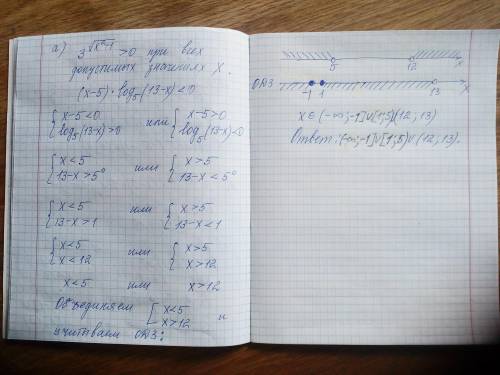 а) 3^√(x²-1) > 0 при всех
допустимых значениях X.
(x-5)·log₅(13-x)<0
{x-5<0 или {x-5>0
{log₅(13-x)>0 {log₅(13-x)<0
{x<5 или {x>5
{13-x>5⁰ {13-x<5⁰
{x<5 или {x>5
{13-x>1 {13-x<1
{x<5 или {x>5
{x<12 {x>12
x<5 или x>12
Объединяем [x<5 и
[x>12
учитываем ОДЗ:
5 12 x
ОДЗ -1 1 13 x
x∈(-∞;-1]∪[1;5)(12;13)
Ответ: (-∞;-1]∪[1;5)∪(12;13).